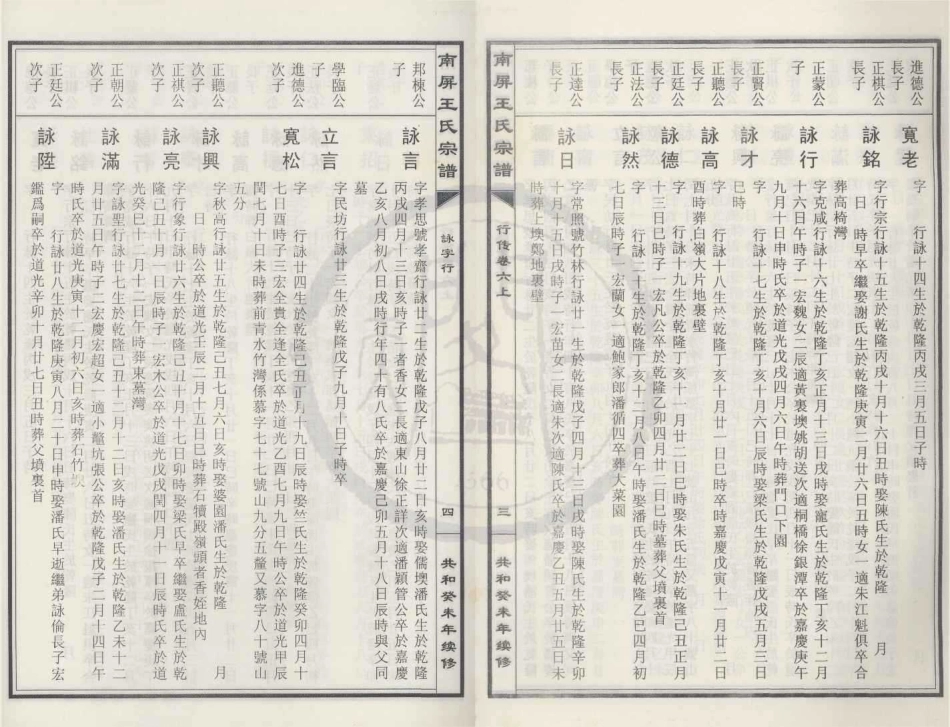 進德公
長子
寬老
字　行詠十四生於乾隆丙戌十月三日子時
正棋公
長子
詠銘
字　行宗行詠十五生於乾隆丙戌十月十六日丑時娶陳氏生於乾隆　月
日　時早卒繼娶謝氏生於乾隆庚寅二月廿六日丑時女一適朱江魁俱卒合
葬高椅灣
正蒙公
子
詠行
字克咸行詠十六生於乾隆丁亥正月十三日戌時娶龐氏生於乾隆丁亥十二月
十六日午時子一宏魏女二辰適黃裏墺姚胡送次適桐橋徐銀潭卒於嘉慶庚午
九月十日申時氏卒於道光戊戌四月六日午時葬門口下園
正賢公
長子
詠才
字　行詠十七生於乾隆丁亥十月六日辰時娶梁氏生於乾隆戊戌五月三日
巳時
正聽公
長子
詠高
字　行詠十八生於乾隆丁亥十月廿一日巳時卒時嘉慶戊寅十一月廿二日
酉時葬白嶺大片地裏壁
正廷公
長子
詠德
字　行詠十九生於乾隆丁亥十一月廿二日巳時娶朱氏生於乾隆己丑正月
十三日巳時子一宏凡公卒於乾隆乙卯四月廿二日巳時墓葬父墳裏首
正法公
長子
詠然
字　行詠二十生於乾隆丁亥十二月八日午時娶潘氏生於乾隆乙巳四月初
七日辰時子一宏蘭女一適鮑家郎潘循四卒葬大菜園
正達公
長子
詠日
字常照號竹林行詠廿一生於乾隆戊子四月十三日戌時娶陳氏生於乾隆辛卯
十月十五日戌時子一宏苗女二長適朱次適陳氏卒於嘉慶乙丑五月廿五日未
時葬上墺鄭地裏壁
南屏王氏宗譜
行传卷六上
三
共和癸未年续修
南屏王氏宗譜
詠字行
四
共和癸未年续修
邦棟公
子
詠言
字孝思號孝齋行詠廿二生於乾隆戊子八月廿二日亥時娶儒墺潘氏生於乾隆
丙戌四月十三日亥時子一者香女二長適東山徐正詳次適潘穎管公卒於嘉慶
乙亥八月初八日戌時行年四十有八氏卒於嘉慶己卯五月十八日辰時與父同
墓
學臨公
子
立言
字民坊行詠廿三生於乾隆戊子九月十日子時卒
進德公
次子
寬松
字　行詠廿四生於乾隆己丑正月十九日辰時娶竺氏生於乾隆癸卯四月十
七日酉時子三宏全貴全逢全氏卒於道光乙酉七月九日午時公卒於道光甲辰
閏七月十日未時葬前青水竹灣係慕字七十七號山九分五釐又慕字八十號山
五分
正聽公
次子
詠興
字秋高行詠廿五生於乾隆己丑七月六日亥時娶婆園潘氏生於乾隆　月
日　時公卒於道光壬辰二月十五日巳時葬石犢殿嶺頭者香姪地內
正棋公
次子
詠亮
字行象行詠廿六生於乾隆己丑十月十七日卯時娶梁氏早卒繼娶盧氏生於乾
隆己丑十月一日辰時子一宏木公卒於道光戊戌閏四月十一日辰時氏卒於道
光癸巳十二月十二日午時葬東墓灣
正朝公
次子
詠滿
字詠聖行詠廿七生於乾隆己丑十二月十二日亥時娶潘氏生於乾隆乙未十二
月廿五日午時子二宏慶宏超女一適小籠坑張公卒於乾隆戊子二月十四日午
時氏卒於道光庚寅十二月初六日亥時葬石竹
正廷公
次子
詠陞
字　行詠廿八生於乾隆庚寅八月二十日申時娶潘氏早逝繼弟詠倫長子宏
鑑爲嗣卒於道光辛卯十月廿七日丑時葬父墳裏首